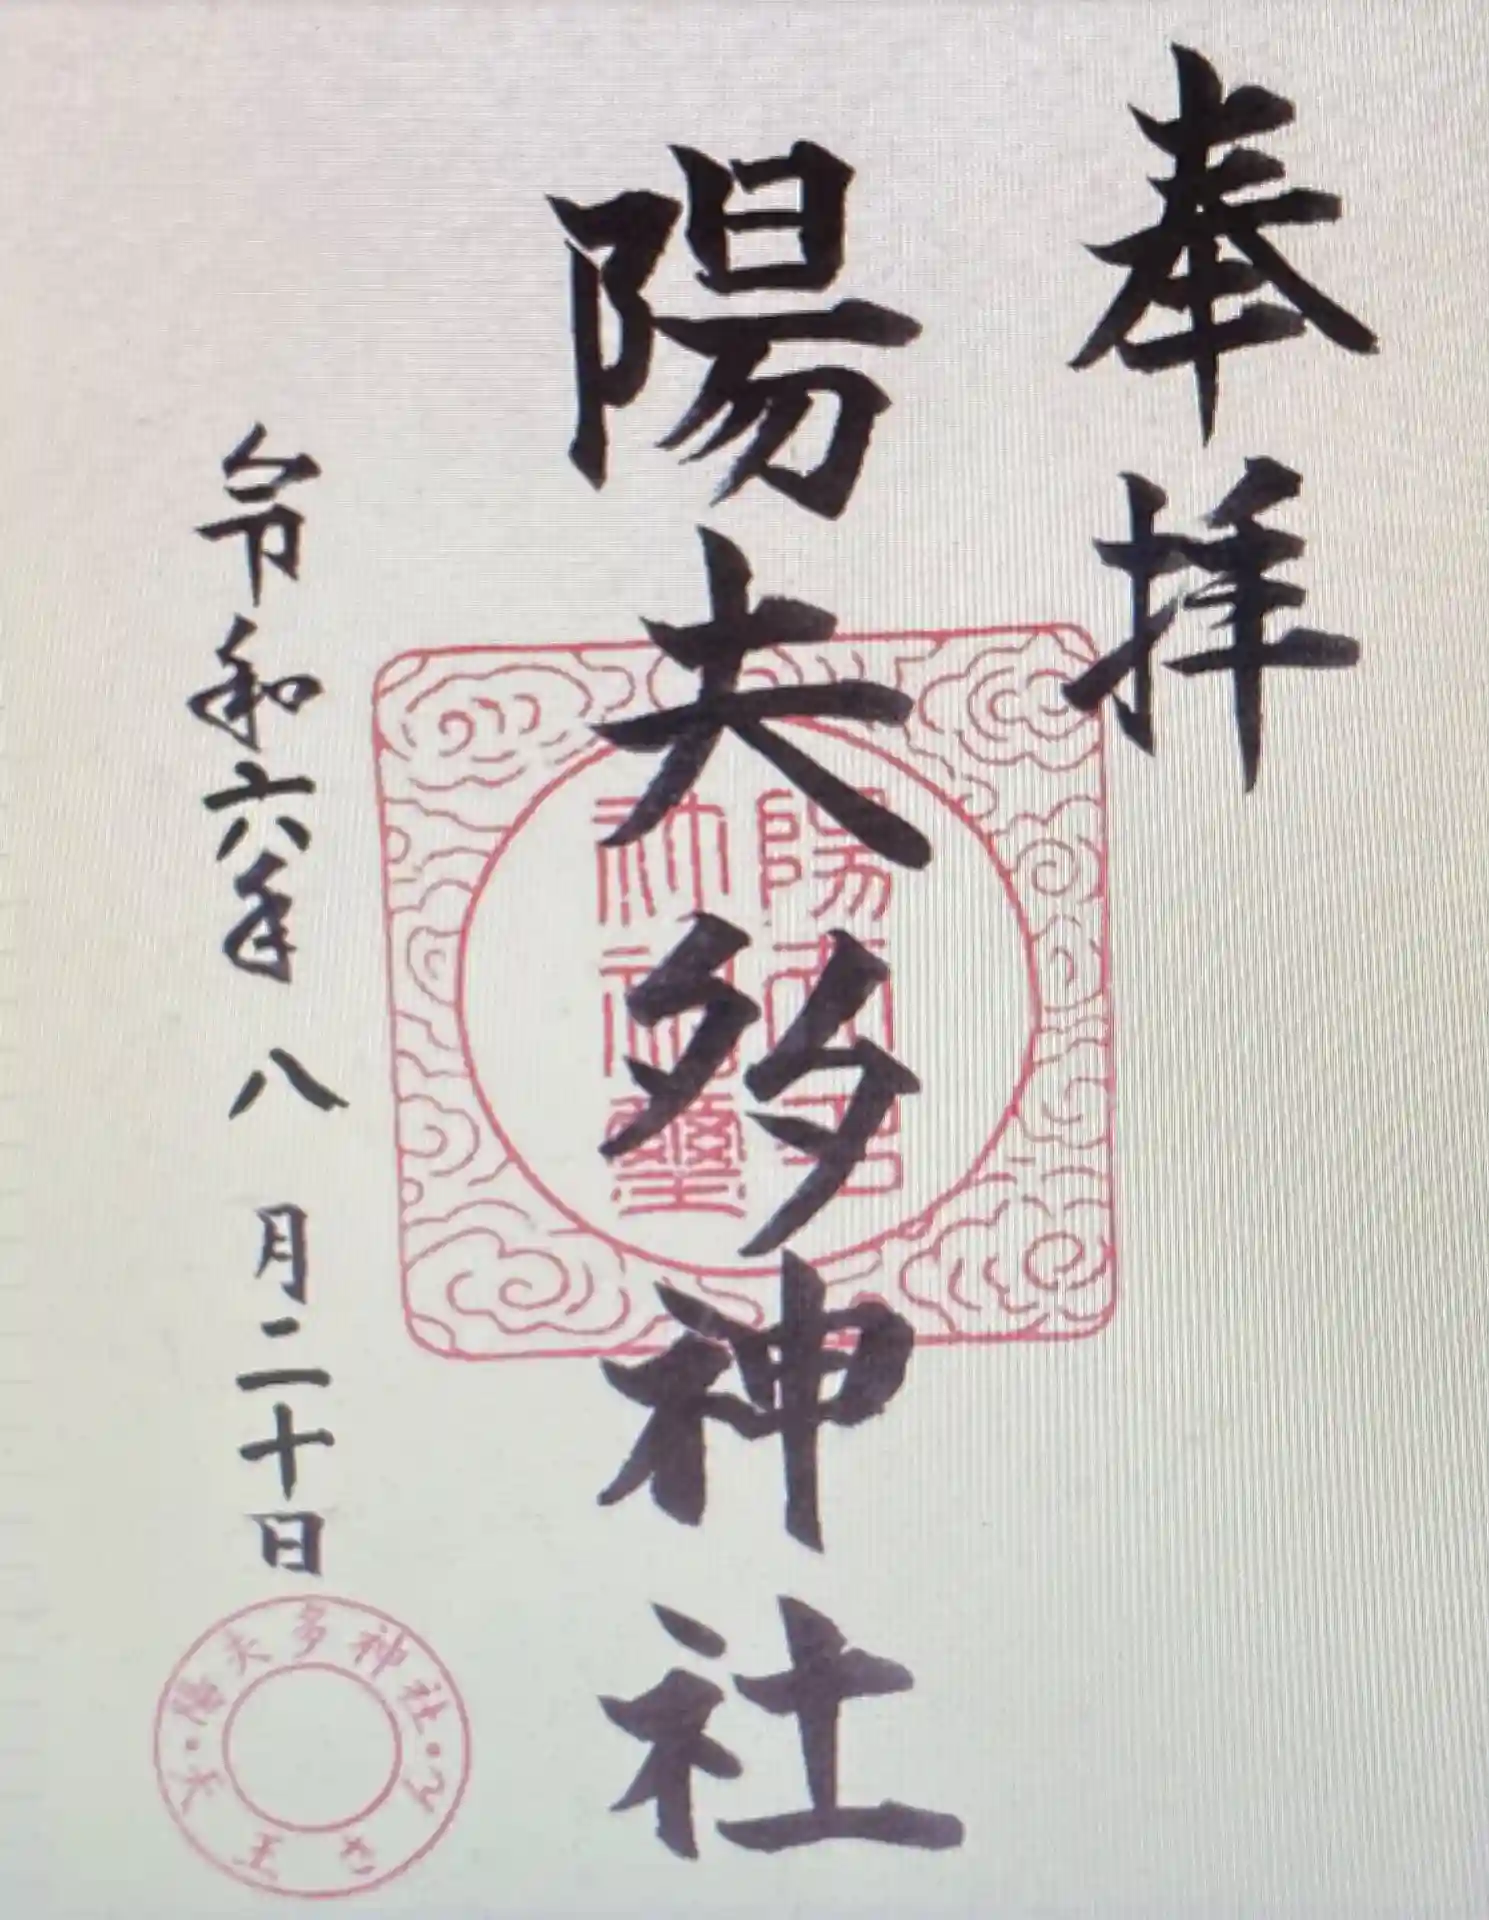 奉拝
陽夫多神社
令和六年八月二十日
陽夫多神社
陽夫多神社・天王さん・